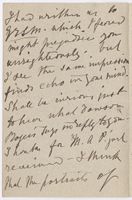 I had written us to
which I feared
might prejudice you
unrighteously. but
I see the same impression
finds echo in your mind
Shall be curious just
to hear what Dawson
Rogers says in reply to you
Thanks for M.A.P. just
received – I think
that the portraits of